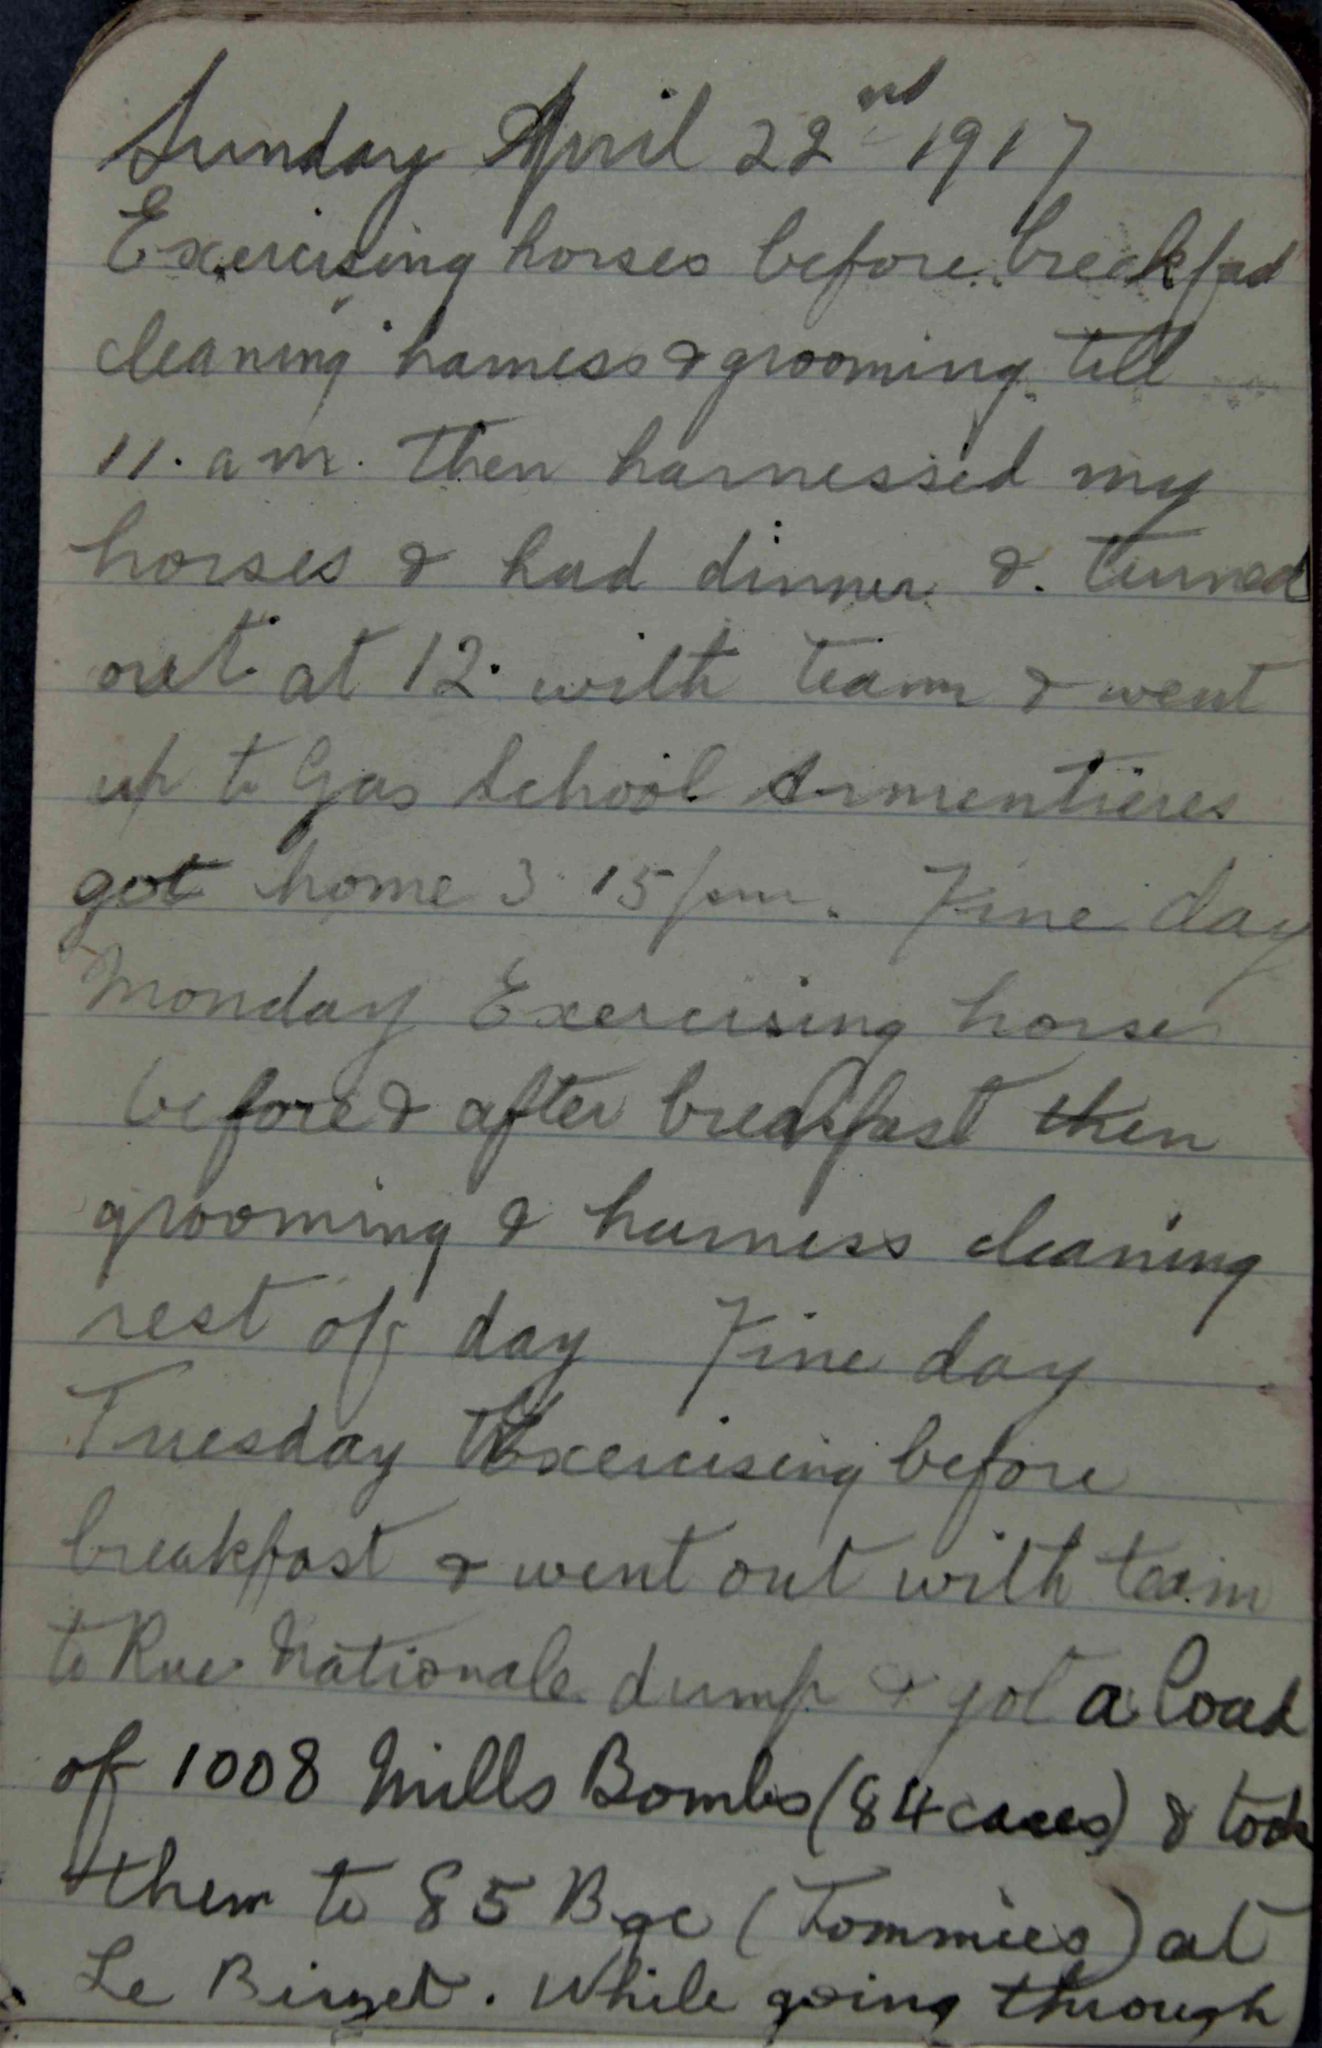 Sunday April 22nd 1917
Exercising horses before breakfast
cleaning harness & grooming till
11. am. Then harnessed my
horses & had dinner & turned
out at 12. with team & went
up to Gas School Armentieres
got home 3.15 pm. Fine day
Monday Exercising horses
before & after breakfast then
grooming & harness cleaning
rest of day Fine day
Tuesday Exercising before
breakfast & went out with team
to Rue Nationale dump & got a load
of 1008 Mills Bombs (84 cases) & took
them to 85 Bge (Tommies) at
Le Bizet. While going through